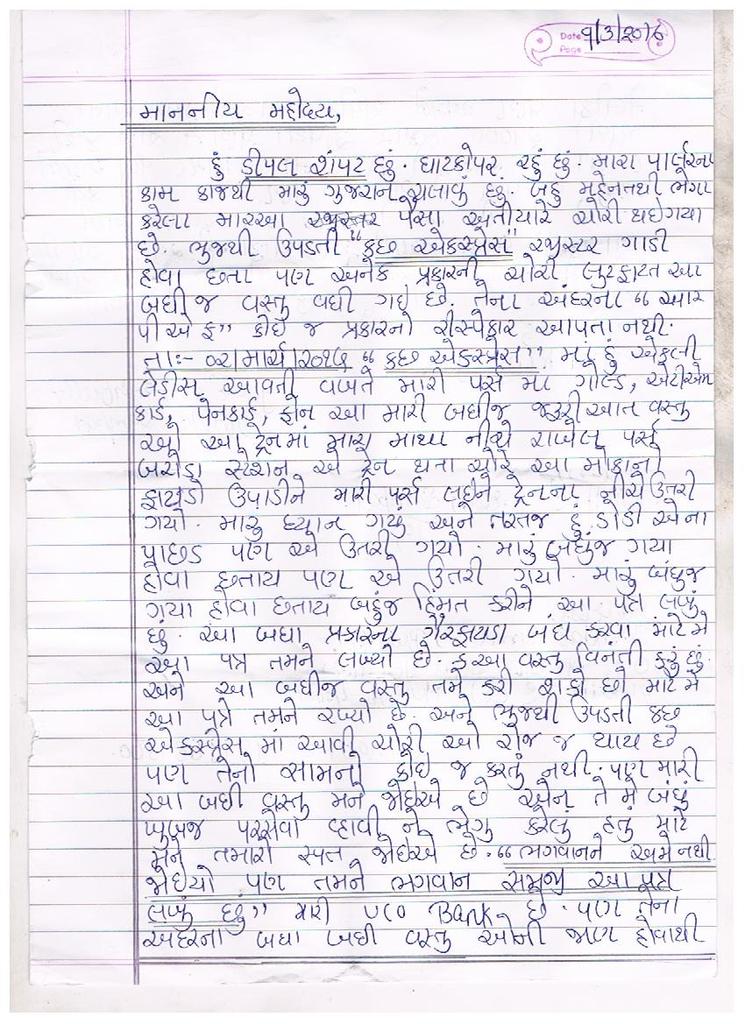 Date ૧/૩/૨૦૧૬
Page
માનનીય મહોદય,
હું ડીપલ શંપટ છું. ઘાટકોપર રહું છું. મારા પાર્લરના
કામ કાજથી મારું ગુજરાન ચલાવું છું. બહુ મહેનતથી ભેગા
કરેલા પૈસા ચોરી થઇ ગયા
છે. ભુજથી ઉપડતી "કછ એકસ્પ્રેસ" ગાડી
હોવા છતા પણ અનેક પ્રકારની ચોરી લુટફાટ આ
બધી જ વસ્તુ વધી ગઇ છે. તેના અંદરના "આર
પી એફ" કોઇ જ પ્રકારનો આપતા નથી.
તા:- ૦૨/માર્ચ/ "કછ એકસ્પ્રેસ" માં હું એકલી
લેડીસ આવતી વખતે મારી પર્સ મા ગોલ્ડ, એટીએમ
કાર્ડ, પેનકાર્ડ, ફોન આ મારી બધીજ જરૂરીઆત વસ્તુ
આ ટ્રેનમાં મારા માથા નીચે રાખેલ પર્સ
સ્ટેશન એ ટ્રેન થતા ચોરે આ મોકાનો
ફાયદો ઉપાડીને મારી પર્સ લઇને ટ્રેનના નીચે ઉતરી
ગયો. મારુ ધ્યાન ગયું અને તરતજ હું દોડી એના
પાછડ પણ એ ઉતરી ગયો. મારું બધુંજ ગયા
હોવા છતાય પણ એ ઉતરી ગયો. મારું બંધુજ
ગયા હોવા છતાય બહુંજ હિંમત કરીને આ પત્ર લખું
છું. આ બધા પ્રકારના ગેરફાયદા બંધ કરવા માટે મે
આ પત્ર તમને લખ્યો છે. કે આ વસ્તુ વિનંતી કરું છું.
અને આ બધીજ વસ્તુ તમે કરી શકો છો માટે મે
આ પત્ર તમને છે. અને ભુજથી ઉપડતી કછ
એકસ્પ્રેસ માં આવી ચોરી ઓ રોજ જ થાય છે
પણ તેનો સામનો કોઇ જ કરતું નથી. પણ મારી
આ બધી વસ્તુ મને જોઇએ છે તે મે બંધું
ખુબજ પરસેવો ને ભેગુ કરેલું હતુ માટે
મને તમારો જોઇએ છે. "ભગવાનને અમે નથી
જોઇયો પણ તમને ભગવાન સમજી આ પત્ર
લખું છું" મારી UCO Bank છે. પણ તેના
અંદરના બધા બધી વસ્તુ ઓની જાણ હોવાથી